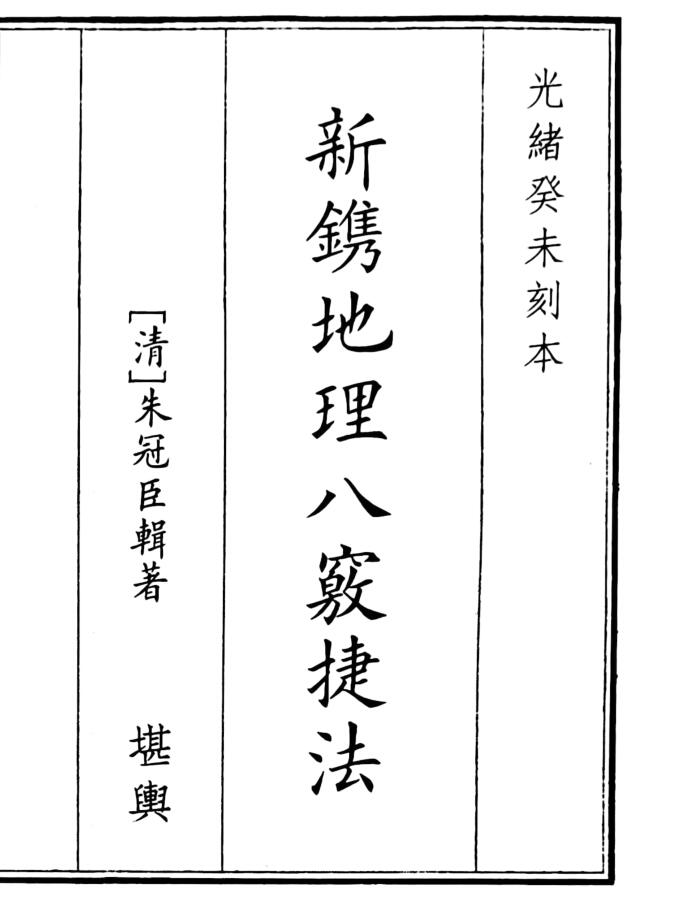 光緒癸未刻本
新鐫地理八竅捷法
[清]朱冠臣輯著 堪輿